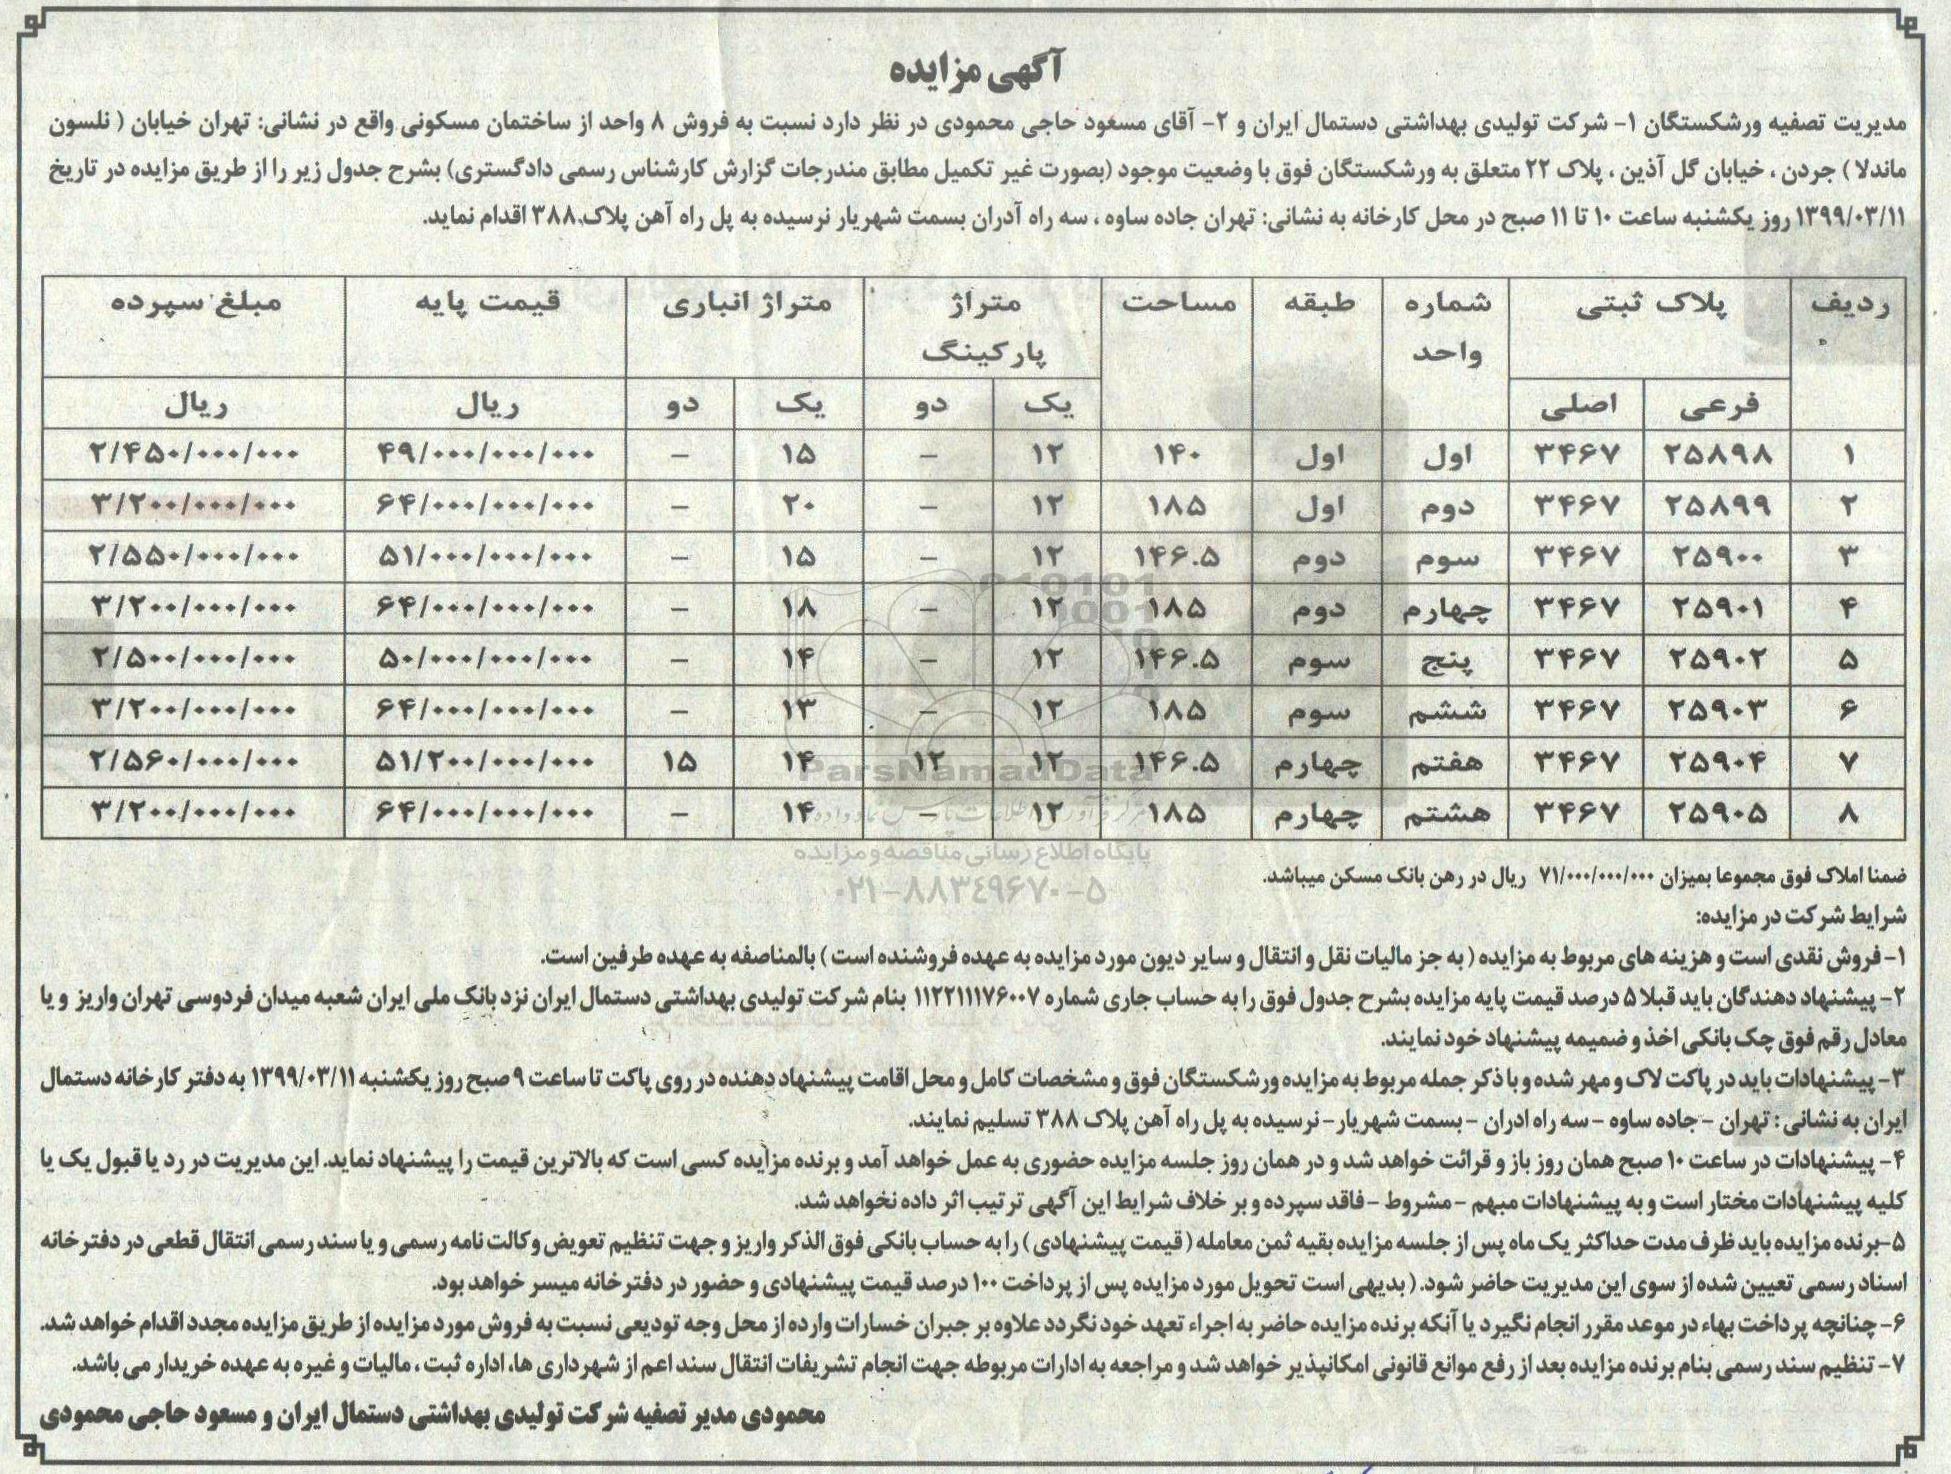 آگهی مزایده
مدیریت تصفیه ورشکستگان ۱- شرکت تولیدی بهداشتی دستمال ایران و ۲- آقای مسعود حاجی محمودی در نظر دارد نسبت به فروش ۸ واحد از ساختمان مسکونی واقع در نشانی: تهران خیابان ( نلسون
ماندلا ) جردن ، خیابان گل آذین ، پلاک ۲۲ متعلق به ورشکستگان فوق با وضعیت موجود (بصورت غیر تکمیل مطابق مندرجات گزارش کارشناس رسمی دادگستری) بشرح جدول زیر را از طریق مزایده در تاریخ
۱۳۹۹/۰۳/۱۱ روز یکشنبه ساعت ۱۰ تا ۱۱ صبح در محل کارخانه به نشانی: تهران جاده ساوه ، سه راه آدران بسمت شهریار نرسیده به پل راه آهن پلاک ۳۸۸ اقدام نماید.
ردیف پلاک ثبتی شماره طبقه مساحت متراژ متراژ انباری قیمت پایه مبلغ سپرده
واحد پارکینگ
فرعی اصلی یک دو یک دو ریال ریال
۱ ۲۵۸۹۸ ۳۴۶۷ اول اول ۱۴۰ ۱۲ - ۱۵ - ۴۹/۰۰۰/۰۰۰/۰۰۰ ۲/۴۵۰/۰۰۰/۰۰۰
۲ ۲۵۸۹۹ ۳۴۶۷ دوم اول ۱۸۵ ۱۲ - ۲۰ - ۶۴/۰۰۰/۰۰۰/۰۰۰ ۳/۲۰۰/۰۰۰/۰۰۰
۳ ۲۵۹۰۰ ۳۴۶۷ سوم دوم ۱۴۶.۵ ۱۲ - ۱۵ - ۵۱/۰۰۰/۰۰۰/۰۰۰ ۲/۵۵۰/۰۰۰/۰۰۰
۴ ۲۵۹۰۱ ۳۴۶۷ چهارم دوم ۱۸۵ ۱۲ - ۱۸ - ۶۴/۰۰۰/۰۰۰/۰۰۰ ۳/۲۰۰/۰۰۰/۰۰۰
۵ ۲۵۹۰۲ ۳۴۶۷ پنج سوم ۱۴۶.۵ ۱۲ - ۱۴ - ۵۰/۰۰۰/۰۰۰/۰۰۰ ۲/۵۰۰/۰۰۰/۰۰۰
۶ ۲۵۹۰۳ ۳۴۶۷ ششم سوم ۱۸۵ ۱۲ - ۱۳ - ۶۴/۰۰۰/۰۰۰/۰۰۰ ۳/۲۰۰/۰۰۰/۰۰۰
۷ ۲۵۹۰۴ ۳۴۶۷ هفتم چهارم ۱۴۶.۵ ۱۲ ۱۲ ۱۴ ۱۵ ۵۱/۲۰۰/۰۰۰/۰۰۰ ۲/۵۶۰/۰۰۰/۰۰۰
ParsNamadData
۸ ۲۵۹۰۵ ۳۴۶۷ هشتم چهارم ۱۸۵ ۱۲ - ۱۴ - ۶۴/۰۰۰/۰۰۰/۰۰۰ ۳/۲۰۰/۰۰۰/۰۰۰
پایگاه اطلاع رسانی مناقصه و مزایده
۰۲۱-۸۸۳۴۹۶۷۰-۵
ضمنا املاک فوق مجموعا بمیزان ۷۱/۰۰۰/۰۰۰/۰۰۰ ریال در رهن بانک مسکن میباشد.
شرایط شرکت در مزایده:
۱- فروش نقدی است و هزینه های مربوط به مزایده ( به جز مالیات نقل و انتقال و سایر دیون مورد مزایده به عهده فروشنده است ) بالمناصفه به عهده طرفین است.
۲- پیشنهاد دهندگان باید قبلا ۵ درصد قیمت پایه مزایده بشرح جدول فوق را به حساب جاری شماره ۱۱۲۲۱۱۱۷۶۰۰۷ بنام شرکت تولیدی بهداشتی دستمال ایران نزد بانک ملی ایران شعبه میدان فردوسی تهران واریز و یا
معادل رقم فوق چک بانکی اخذ و ضمیمه پیشنهاد خود نمایند.
۳- پیشنهادات باید در پاکت لاک و مهر شده و با ذکر جمله مربوط به مزایده ورشکستگان فوق و مشخصات کامل و محل اقامت پیشنهاد دهنده در روی پاکت تا ساعت ۹ صبح روز یکشنبه ۱۳۹۹/۰۳/۱۱ به دفتر کارخانه دستمال
ایران به نشانی : تهران - جاده ساوه - سه راه ادران - بسمت شهریار - نرسیده به پل راه آهن پلاک ۳۸۸ تسلیم نمایند.
۴- پیشنهادات در ساعت ۱۰ صبح همان روز باز و قرائت خواهد شد و در همان روز جلسه مزایده حضوری به عمل خواهد آمد و برنده مزایده کسی است که بالاترین قیمت را پیشنهاد نماید. این مدیریت در رد یا قبول یک یا
کلیه پیشنهادات مختار است و به پیشنهادات مبهم - مشروط - فاقد سپرده و بر خلاف شرایط این آگهی ترتیب اثر داده نخواهد شد.
۵- برنده مزایده باید ظرف مدت حداکثر یک ماه پس از جلسه مزایده بقیه ثمن معامله ( قیمت پیشنهادی ) را به حساب بانکی فوق الذکر واریز و جهت تنظیم تعویض وکالت نامه رسمی و یا سند رسمی انتقال قطعی در دفتر خانه
اسناد رسمی تعیین شده از سوی این مدیریت حاضر شود. ( بدیهی است تحویل مورد مزایده پس از پرداخت ۱۰۰ درصد قیمت پیشنهادی و حضور در دفترخانه میسر خواهد بود.
۶- چنانچه پرداخت بهاء در موعد مقرر انجام نگیرد یا آنکه برنده مزایده حاضر به اجراء تعهد خود نگردد علاوه بر جبران خسارات وارده از محل وجه تودیعی نسبت به فروش مورد مزایده از طریق مزایده مجدد اقدام خواهد شد.
۷- تنظیم سند رسمی بنام برنده مزایده بعد از رفع موانع قانونی امکانپذیر خواهد شد و مراجعه به ادارات مربوطه جهت انجام تشریفات انتقال سند اعم از شهرداری ها، اداره ثبت ، مالیات و غیره به عهده خریدار می باشد.
محمودی مدیر تصفیه شرکت تولیدی بهداشتی دستمال ایران و مسعود حاجی محمودی